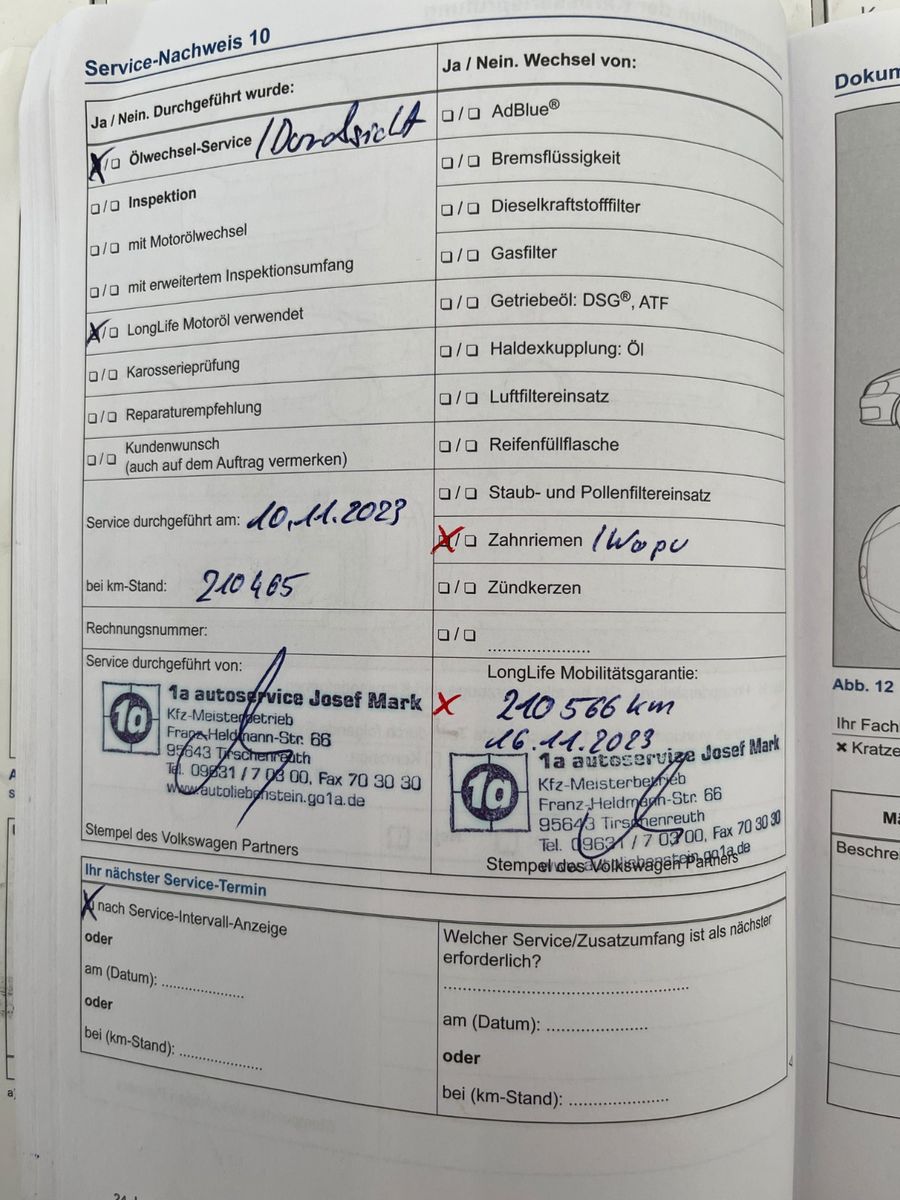 Service-Nachweis 10
Ja / Nein. Durchgeführt wurde:
☒/❏ Ölwechsel-Service / Durchsicht
❏/❏ Inspektion
❏/❏ mit Motorölwechsel
❏/❏ mit erweitertem Inspektionsumfang
☒/❏ LongLife Motoröl verwendet
❏/❏ Karosserieprüfung
❏/❏ Reparaturempfehlung
❏/❏ Kundenwunsch
(auch auf dem Auftrag vermerken)
Service durchgeführt am: 10.11.2023
bei km-Stand: 210465
Rechnungsnummer:
Service durchgeführt von:
1a
1a autoservice Josef Mark
Kfz-Meisterbetrieb
Franz-Heldmann-Str. 66
95643 Tirschenreuth
Tel. 09631 / 7 03 00, Fax 70 30 30
www.autoliebenstein.go1a.de
Stempel des Volkswagen Partners
Ja / Nein. Wechsel von:
❏/❏ AdBlue®
❏/❏ Bremsflüssigkeit
❏/❏ Dieselkraftstofffilter
❏/❏ Gasfilter
❏/❏ Getriebeöl: DSG®, ATF
❏/❏ Haldexkupplung: Öl
❏/❏ Luftfiltereinsatz
❏/❏ Reifenfüllflasche
❏/❏ Staub- und Pollenfiltereinsatz
☒/❏ Zahnriemen / Wapu
❏/❏ Zündkerzen
❏/❏ ......................
LongLife Mobilitätsgarantie:
x 210 566 km
16.11.2023
1a
1a autoservice Josef Mark
Kfz-Meisterbetrieb
Franz-Heldmann-Str. 66
95643 Tirschenreuth
Tel. 09631 / 7 03 00, Fax 70 30 30
www.autoliebenstein.go1a.de
Stempel des Volkswagen Partners
Ihr nächster Service-Termin
☒ nach Service-Intervall-Anzeige
oder
am (Datum): ..................
oder
bei (km-Stand): ..................
Welcher Service/Zusatzumfang ist als nächster
erforderlich?
..................................................
am (Datum): ......................
oder
bei (km-Stand): ......................
Dokum
Abb. 12
Ihr Fach
× Kratze
Beschre